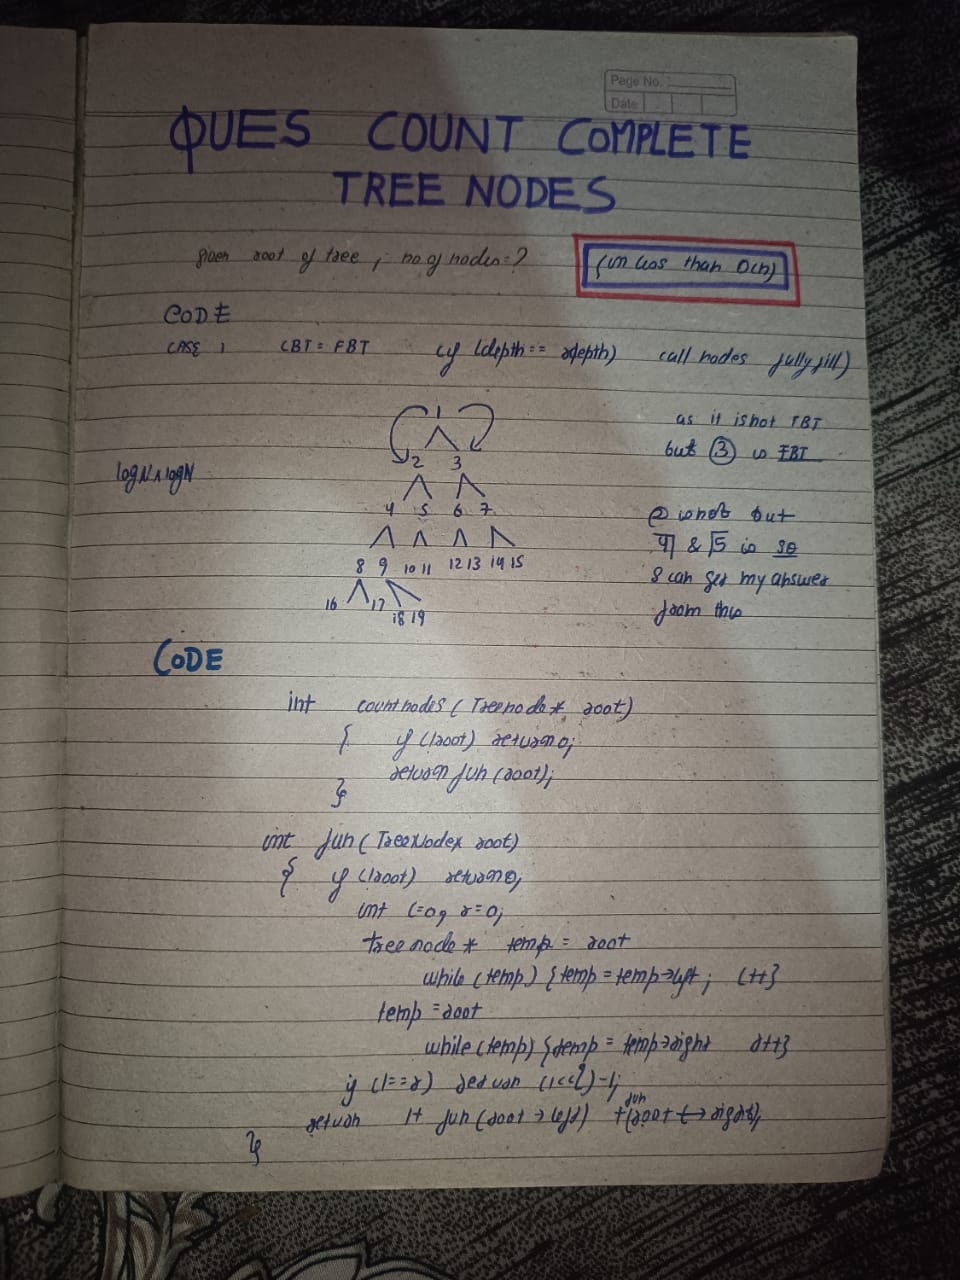 Page No.
Date
QUES COUNT COMPLETE
TREE NODES
given root of tree, no of nodes = ?
(in less than O(n))
CODE
CASE 1 CBT = FBT if (ldepth == rdepth) (all nodes fully fill)
1
as it is not FBT
but ③ is FBT
2 3
logN x logN
4 5 6 7
② is not but
4 & 5 is so
8 9 10 11 12 13 14 15
I can get my answer
from this
16 17 18 19
CODE
int countnodes (Treenode* root)
{ if (!root) return 0;
return fun (root);
}
int fun (TreeNode* root)
{ if (!root) return 0;
int l=0, r=0;
tree node* temp = root
while (temp) {temp = temp->left; l++}
temp = root
while (temp) {temp = temp->right r++}
if (l==r) return (1<<l)-1;
return 1+ fun (root->left) + fun (root->right);
}